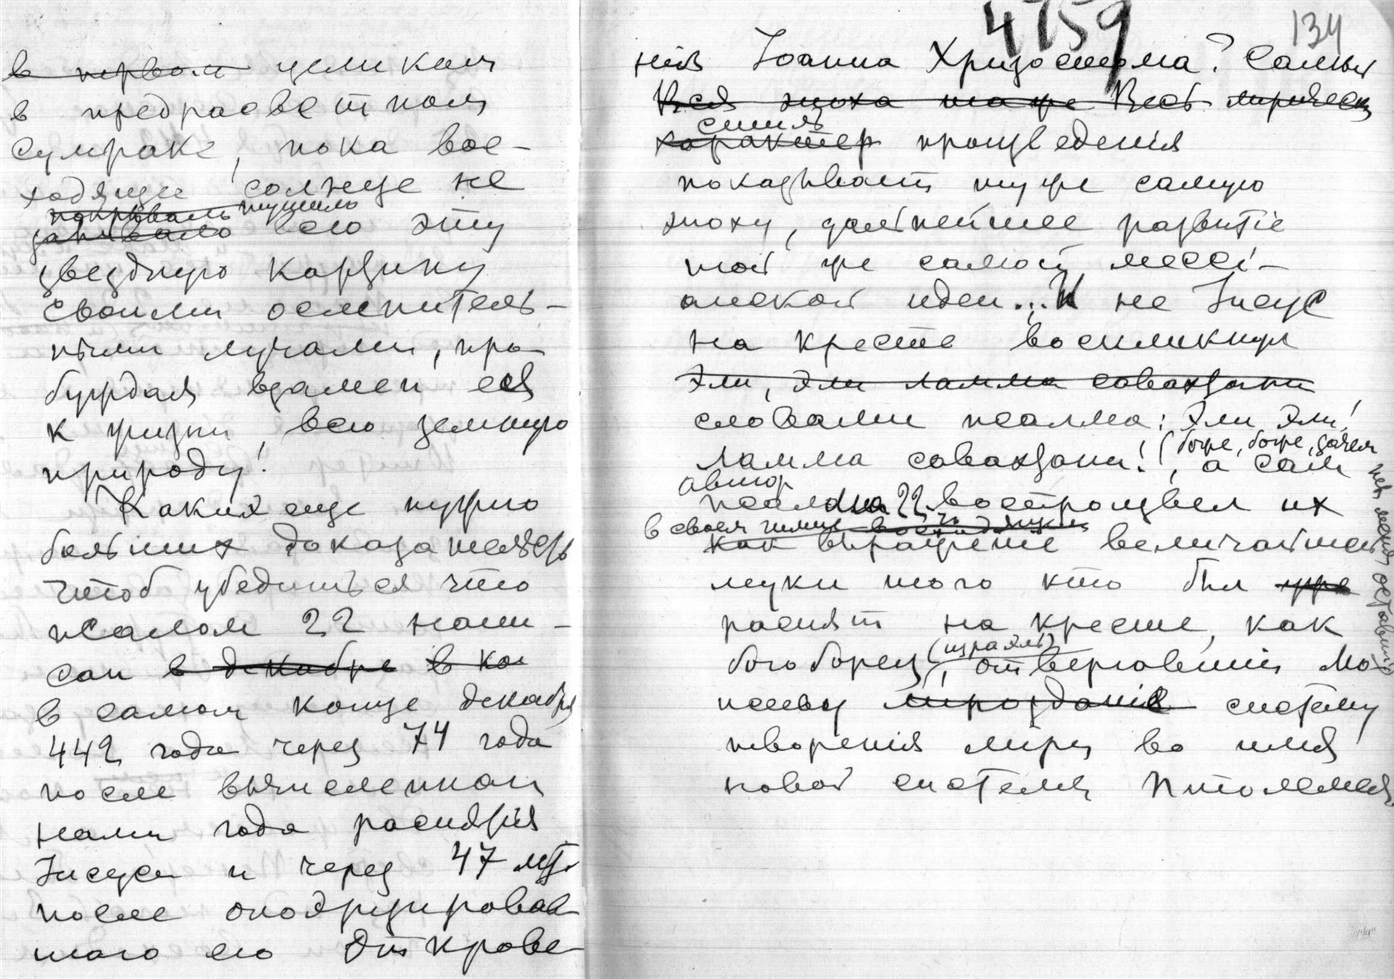 в первом целиком
в предрассветном
сумраке, пока вос-
ходящее солнце не
покрывало тушило
заливало всю эту
звездную картину
своими ослепитель-
ными лучами, про-
буждая взамен ея
к жизни, всю земную
природу!
Каких еще нужно
больших доказательств
чтоб убедиться что
псалом 22 напи-
сан в декабре в ко
в самом конце декабря
442 года через 74 года
после вычисленнаго
нами года распятія
Іисуса и через 47 лет
после
шаго его Открове-
4759
134
нія Іоанна Хризостома? Самый
Вся эпоха та же Весь лирическ
стиль
характер произведенія
показывает ту же самую
эпоху, дальнейшее развитіе
той же самой мессі-
анской идеи... И не Іисус
на кресте воскликнул
Эли, Эли ламма савахзани
словами псалма: Эли Эли!
ламма савахзани! (боже, боже, зачем
ты меня оставил?), а сам
автор
псалма 22 воспроизвел их
в своем гимне
как выраженіе величайшей
муки того кто был уже
распят на кресте, как
богоборец (израэль), отвергавший Мо
исееву мирозданіе систему
творенія мира во имя
новой системы Птолемея